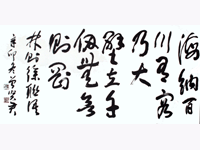 海納百
川有容
乃大
壁立千
仞無欲
則剛
林則徐聯語
辛卯冬